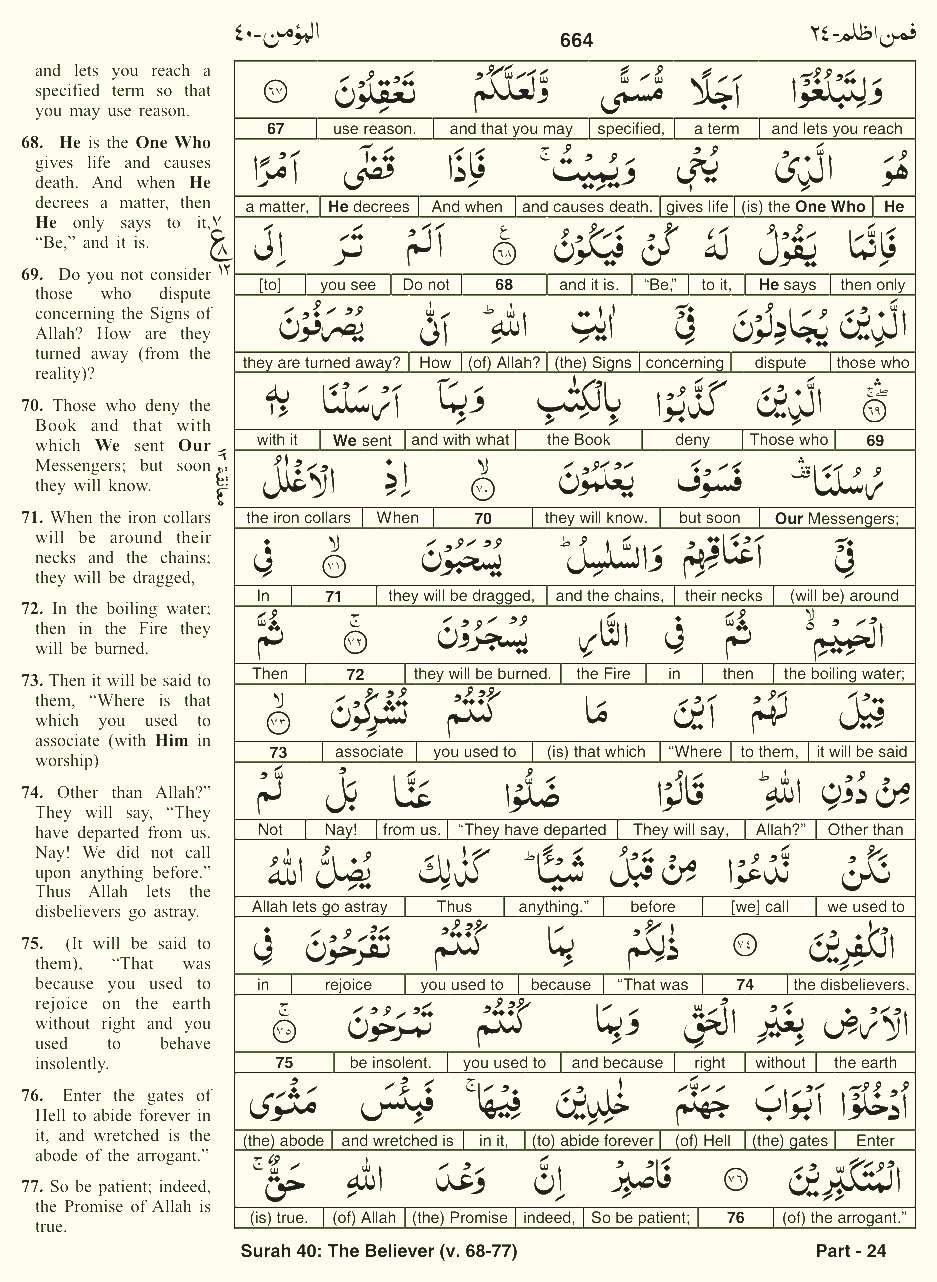 المؤمن-٤٠
664
فمن اظلم-٢٤
and lets you reach a
specified term so that
you may use reason.
68. He is the One Who
gives life and causes
death. And when He
decrees a matter, then
He only says to it,
“Be,” and it is.
69. Do you not consider
those who dispute
concerning the Signs of
Allah? How are they
turned away (from the
reality)?
70. Those who deny the
Book and that with
which We sent Our
Messengers; but soon
they will know.
71. When the iron collars
will be around their
necks and the chains;
they will be dragged,
72. In the boiling water;
then in the Fire they
will be burned.
73. Then it will be said to
them, “Where is that
which you used to
associate (with Him in
worship)
74. Other than Allah?”
They will say, “They
have departed from us.
Nay! We did not call
upon anything before.”
Thus Allah lets the
disbelievers go astray.
75. (It will be said to
them), “That was
because you used to
rejoice on the earth
without right and you
used to behave
insolently.
76. Enter the gates of
Hell to abide forever in
it, and wretched is the
abode of the arrogant.”
77. So be patient; indeed,
the Promise of Allah is
true.
وَلِتَبْلُغُوْٓا اَجَلًا مُّسَمًّى وَّلَعَلَّكُمْ تَعْقِلُوْنَ ٦٧
and lets you reach a term specified, and that you may use reason. 67
هُوَ الَّذِیْ یُحْیٖ وَیُمِیْتُ ۚ فَاِذَا قَضٰٓی اَمْرًا
He (is) the One Who gives life and causes death. And when He decrees a matter,
فَاِنَّمَا یَقُوْلُ لَهٗ كُنْ فَیَكُوْنُ ٦٨ اَلَمْ تَرَ اِلَی
then only He says to it, “Be,” and it is. 68 Do not you see [to]
الَّذِیْنَ یُجَادِلُوْنَ فِیْٓ اٰیٰتِ اللّٰهِ ؕ اَنّٰی یُصْرَفُوْنَ
those who dispute concerning (the) Signs (of) Allah? How they are turned away?
٦٩ الَّذِیْنَ كَذَّبُوْا بِالْكِتٰبِ وَبِمَاۤ اَرْسَلْنَا بِهٖ
69 Those who deny the Book and with what We sent with it
رُسُلَنَا فَسَوْفَ یَعْلَمُوْنَ ٧٠ اِذِ الْاَغْلٰلُ
Our Messengers; but soon they will know. 70 When the iron collars
فِیْۤ اَعْنَاقِهِمْ وَالسَّلٰسِلُ ؕ یُسْحَبُوْنَ ٧١ فِی
(will be) around their necks and the chains, they will be dragged, 71 In
الْحَمِیْمِ ثُمَّ فِی النَّارِ یُسْجَرُوْنَ ٧٢ ثُمَّ
the boiling water; then in the Fire they will be burned. 72 Then
قِیْلَ لَهُمْ اَیْنَ مَا كُنْتُمْ تُشْرِكُوْنَ ٧٣
it will be said to them, “Where (is) that which you used to associate 73
مِنْ دُوْنِ اللّٰهِ ؕ قَالُوْا ضَلُّوْا عَنَّا بَلْ لَّمْ
Other than Allah?” They will say, “They have departed from us. Nay! Not
نَكُنْ نَّدْعُوْا مِنْ قَبْلُ شَیْـًٔا ؕ كَذٰلِكَ یُضِلُّ اللّٰهُ
we used to [we] call before anything.” Thus Allah lets go astray
الْكٰفِرِیْنَ ٧٤ ذٰلِكُمْ بِمَا كُنْتُمْ تَفْرَحُوْنَ فِی
the disbelievers. 74 “That was because you used to rejoice in
الْاَرْضِ بِغَیْرِ الْحَقِّ وَبِمَا كُنْتُمْ تَمْرَحُوْنَ ٧٥
the earth without right and because you used to be insolent. 75
اُدْخُلُوْٓا اَبْوَابَ جَهَنَّمَ خٰلِدِیْنَ فِیْهَا ۚ فَبِئْسَ مَثْوَی
Enter (the) gates (of) Hell (to) abide forever in it, and wretched is (the) abode
الْمُتَكَبِّرِیْنَ ٧٦ فَاصْبِرْ اِنَّ وَعْدَ اللّٰهِ حَقٌّ ۚ
(of) the arrogant.” 76 So be patient; indeed, (the) Promise (of) Allah (is) true.
Surah 40: The Believer (v. 68-77)
Part - 24